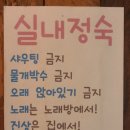 실내정숙
샤우팅 금지
물개박수 금지
오래 앉아있기 금지
노래는 노래방에서!
진상은 집에서!